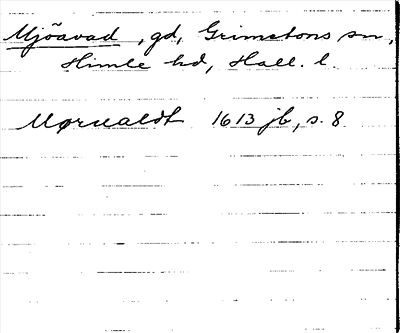 Mjöavad, gd, Grimetons sn,
Himle hd, Hall. l.
Mørualdt 1613 jb, s. 8